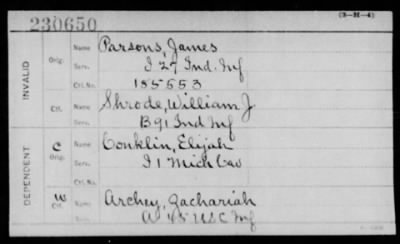 230650
(3-H-4)
INVALID
Orig. Name Parsons, James
Serv. I 27 Ind. Inf
Ctf. No. 155553
Ctf. Name Shrode, William J
Serv. B 91 Ind Inf
DEPENDENT
C Orig. Name Conklin, Elijah
Serv. I 1 Mich Cav
Ctf. No.
W Ctf. Name Archey, Zachariah
Serv. A 45 USC Inf